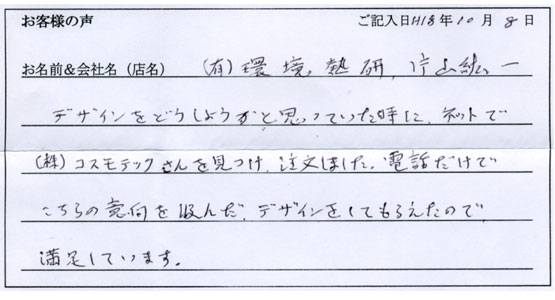 お客様の声 ご記入日H18年10月8日
お名前&会社名(店名) (有)環境熱研 片山紘一
デザインをどうしようかと思っていた時に、ネットで
(株)コスモテックさんを見つけ、注文しました。電話だけで
こちらの意向を汲んだ、デザインをしてもらえたので
満足しています。